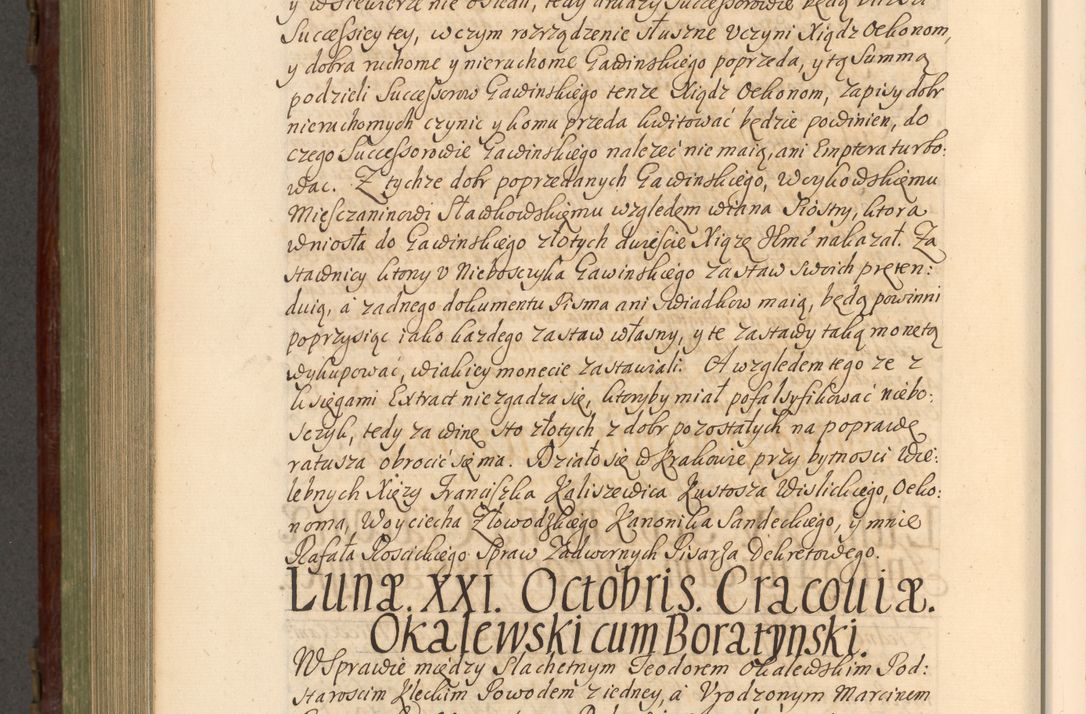 y w Siewierze nie osiędą, tedy drudzy Successorowie będą bliżsi
Successiey tey, w czym rozrządzenie słuszne Vczyni Xiądz Oekonom,
y dobra ruchome y nieruchome Gawinskiego poprzeda, y tą Summą
podzieli Successorow Gawinskiego tenze Xiądz Oekonom, Zapisy dobr
nieruchomych czynic y komu przeda kwitować będzie powinien, do
czego Successorowie Gawinskiego nalezeć nie maią, ani Emptora turbo:
wac. Z tychze dobr poprzedanych Gawinskiego, Wcykowskiemu
Miesczaninowi Sławkowskiemu względem wiana Siostry, ktora
wniosła do Gawinskiego złotych dwieście Xiąze JHmć nakazał. Za
stawnicy ktorzy v Niebosczyka Gawinskiego zastaw swoich preten:
duią, a zadnego dokumentu Pisma ani Swiadkow maią, będą powinni
poprzysiąc iako kazdego zastaw własny, y te zastawy taką monetą
wykupować, w iakiey monecie zastawiali. A względem tego ze z
księgami Extract niezgadza się, ktoryby miał pofalsyfikować niebo:
sczyk, tedy za winę sto złotych z dobr pozostałych na poprawę
ratusza obrocić się ma. Działo się w Krakowie przy bytnosci Wie:
lebnych Xięzy Franciszka Kaliszewica Kustosza Wislickiego, Oeko:
noma, Woyciecha Złowodzkiego Kanonika Sandeckiego, y mnie
Rafała Roscickiego Spraw Zadwornych Pisarza Dekretowego.
Lunæ. XXI. Octobris. Cracouiæ.
Okalewski cum Boratynski.
W Sprawie między Slachetnym Teodorem Okalewskim Pod:
staroscim Kleckim Powodem z iedney, a Vrodzonym Marcinem